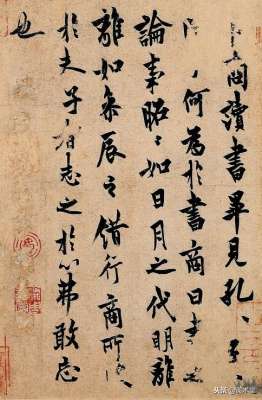 商問讀書畢見孔〻子〻
問〻何為於書商曰書之
論事昭〻如日月之代明離
離如參辰之錯行商所受
於夫子者志之於心弗敢忘
也